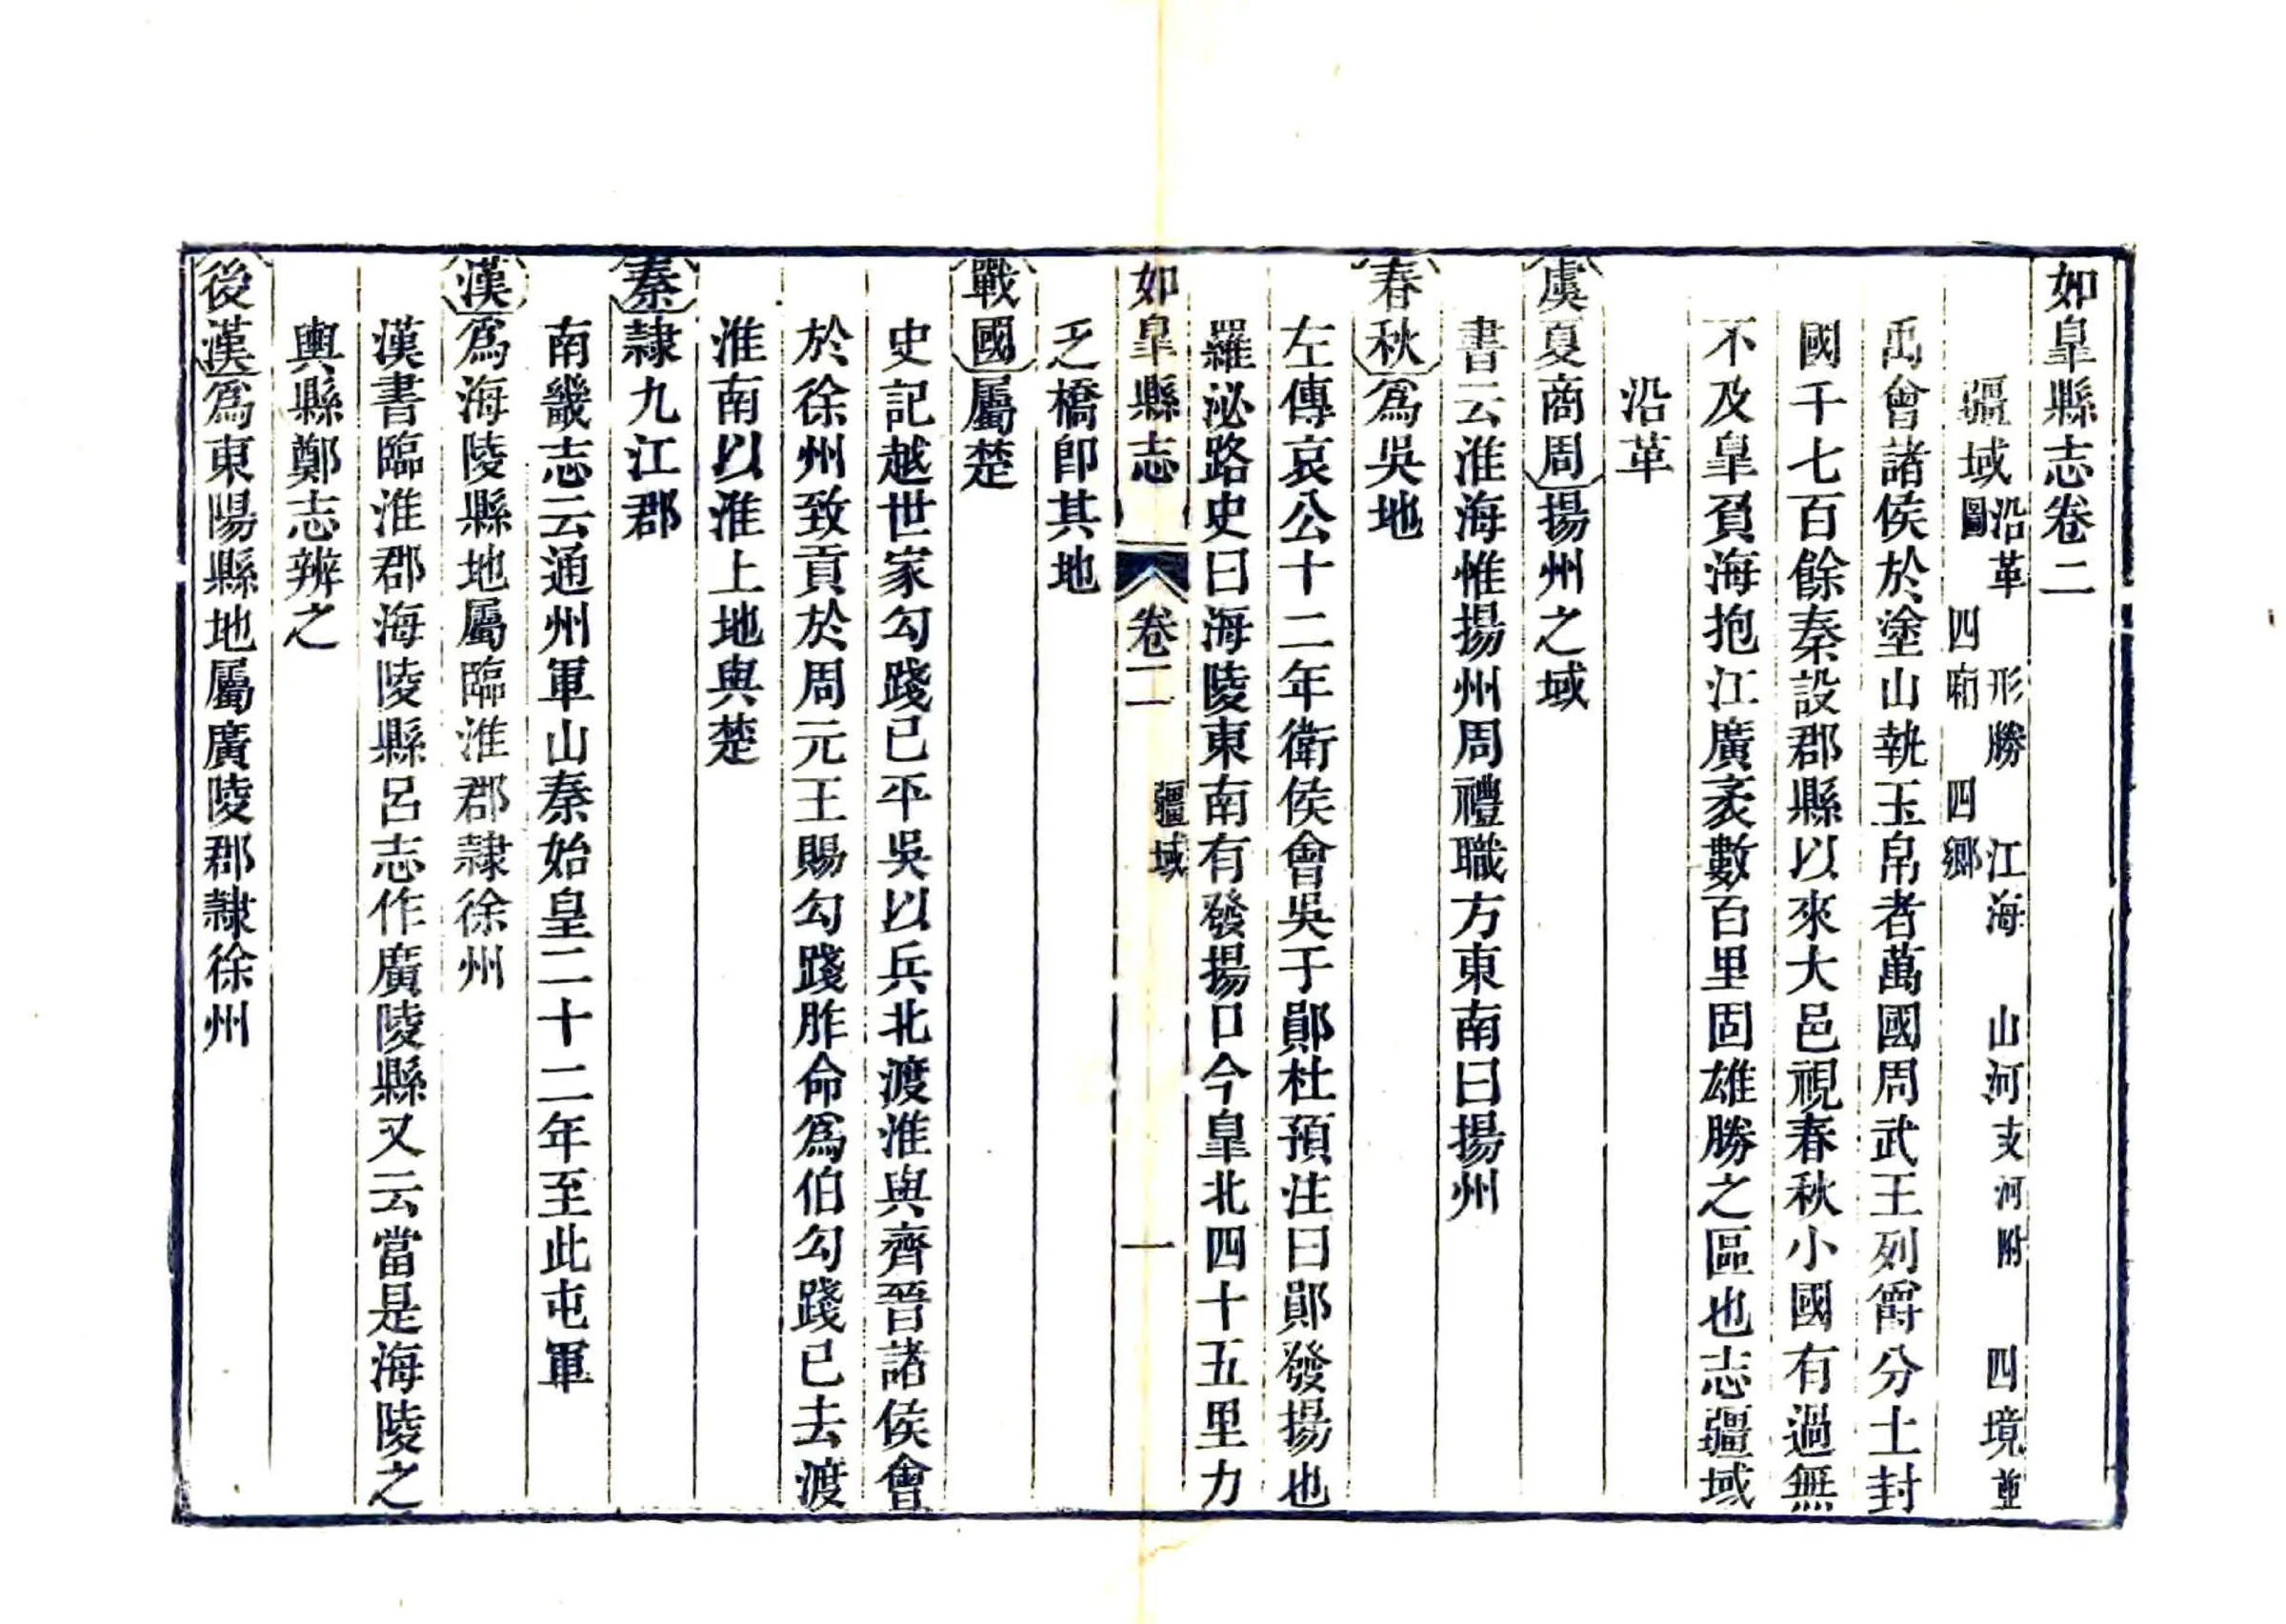 如皋縣志卷二
疆域沿革　形勝　江海　山河支河附　四境並
圖　四廂　四鄉
禹會諸侯於塗山執玉帛者萬國周武王列爵分土封
國千七百餘秦設郡縣以來大邑視春秋小國有過無
不及皋負海抱江廣袤數百里固雄勝之區也志疆域
沿革
虞夏商周揚州之域
書云淮海惟揚州周禮職方東南曰揚州
春秋爲吳地
左傳哀公十二年衛侯會吳于鄖杜預注曰鄖發揚也
羅泌路史曰海陵東南有發揚口今皋北四十五里力
如皋縣志　卷二　疆域　一
乏橋卽其地
戰國屬楚
史記越世家勾踐已平吳以兵北渡淮與齊晉諸侯會
於徐州致貢於周元王賜勾踐胙命爲伯勾踐已去渡
淮南以淮上地與楚
秦隸九江郡
南畿志云通州軍山秦始皇二十二年至此屯軍
漢爲海陵縣地屬臨淮郡隸徐州
漢書臨淮郡海陵縣呂志作廣陵縣又云當是海陵之
輿縣鄭志辨之
後漢爲東陽縣地屬廣陵郡隸徐州